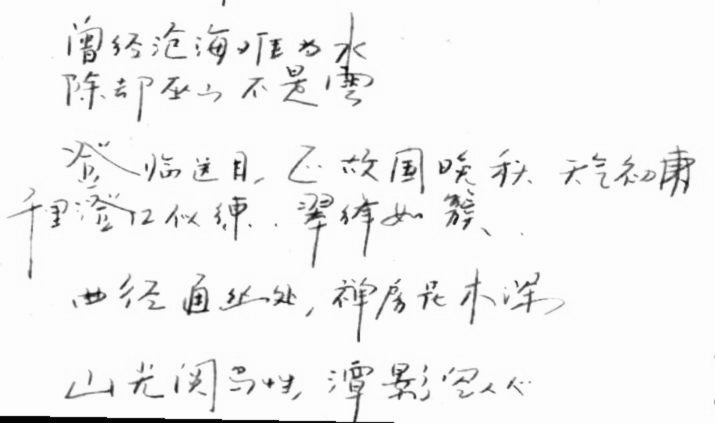 曾经沧海难为水
除却巫山不是雲
登临送目,正故国晚秋 天气初肃
千里澄江似練..翠峰如簇、.
曲径通幽处,禅房花木深
山光悦鸟性,潭影空人心